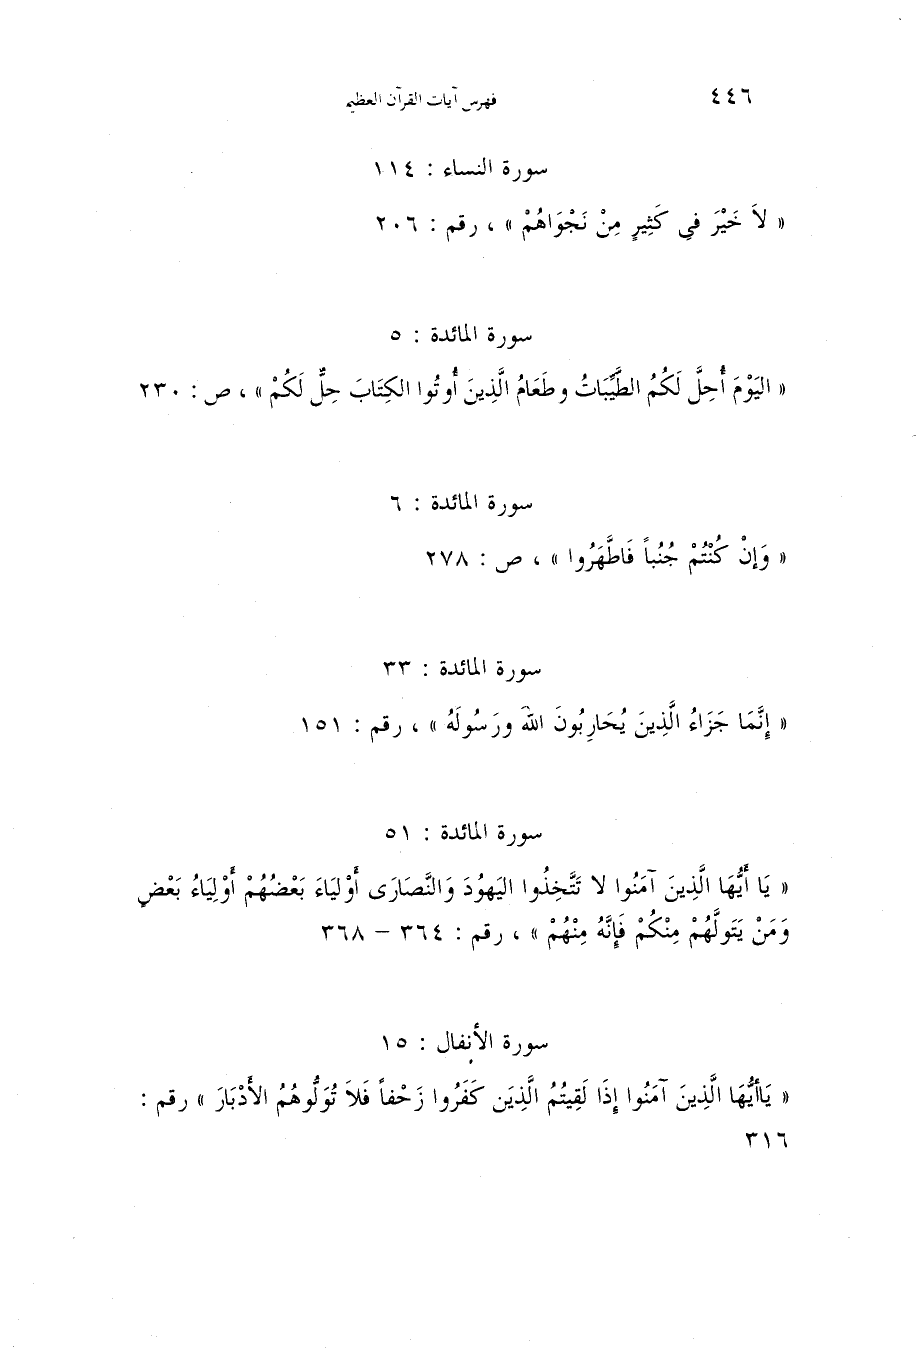 ٤٤٦ فهرس آيات القرآن العظيم
سورة النساء : ١١٤
« لاَ خَيْرَ فِي كَثِيرٍ مِنْ نَجْوَاهُمْ » ، رقم : ٢٠٦
سورة المائدة : ٥
« اليَوْمَ أُحِلَّ لَكُمُ الطَّيِّبَاتُ وطَعَامُ الَّذِينَ أُوتُوا الكِتَابَ حِلٌّ لَكُمْ » ، ص : ٢٣٠
سورة المائدة : ٦
« وَإنْ كُنْتُمْ جُنُباً فَاطَّهَرُوا » ، ص : ٢٧٨
سورة المائدة : ٣٣
« إِنَّمَا جَزَاءُ الَّذِينَ يُحَارِبُونَ اللهَ ورَسُولَهُ » ، رقم : ١٥١
سورة المائدة : ٥١
« يَا أَيُّهَا الَّذِينَ آمَنُوا لا تَتَّخِذُوا اليَهُودَ وَالنَّصَارَى أَوْلِيَاءَ بَعْضُهُمْ أَوْلِيَاءُ بَعْضٍ
وَمَنْ يَتَولَّهُمْ مِنْكُمْ فَإِنَّهُ مِنْهُمْ » ، رقم : ٣٦٤ – ٣٦٨
سورة الأنفال : ١٥
« يَاأَيُّهَا الَّذِينَ آمَنُوا إِذَا لَقِيتُمُ الَّذِيَن كَفَرُوا زَحْفاً فَلاَ تُوَلُّوهُمُ الأَدْبَارَ » رقم :
٣١٦